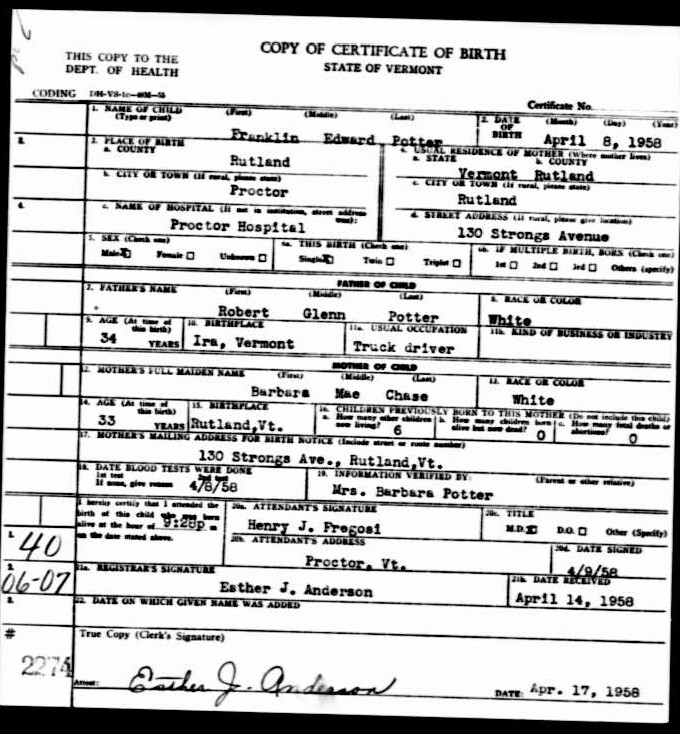 COPY OF CERTIFICATE OF BIRTH
STATE OF VERMONT
THIS COPY TO THE
DEPT. OF HEALTH
CODING DH-VS-1c-40M-55
Certificate No.
1. NAME OF CHILD (First) (Middle) (Last)
(Type or print)
Franklin Edward Potter
2. DATE OF BIRTH (Month) (Day) (Year)
April 8, 1958
3. PLACE OF BIRTH
a. COUNTY
Rutland
4. USUAL RESIDENCE OF MOTHER (Where mother lives)
a. STATE b. COUNTY
Vermont Rutland
b. CITY OR TOWN (If rural, please state)
Proctor
c. CITY OR TOWN (If rural, please state)
Rutland
c. NAME OF HOSPITAL (If not in institution, street address
Proctor Hospital
d. STREET ADDRESS (If rural, please give location)
130 Strongs Avenue
5. SEX (Check one)
Male X Female Unknown
6a. THIS BIRTH (Check one)
Single X Twin Triplet
6b. IF MULTIPLE BIRTH, BORN (Check one)
1st 2nd 3rd Others (specify)
FATHER OF CHILD
7. FATHER'S NAME (First) (Middle) (Last)
Robert Glenn Potter
8. RACE OR COLOR
White
9. AGE (At time of this birth)
34 YEARS
10. BIRTHPLACE
Ira, Vermont
11a. USUAL OCCUPATION
Truck driver
11b. KIND OF BUSINESS OR INDUSTRY
MOTHER OF CHILD
12. MOTHER'S FULL MAIDEN NAME (First) (Middle) (Last)
Barbara Mae Chase
13. RACE OR COLOR
White
14. AGE (At time of this birth)
33 YEARS
15. BIRTHPLACE
Rutland,Vt.
16. CHILDREN PREVIOUSLY BORN TO THIS MOTHER (Do not include this child)
a. How many other children now living? 6
b. How many children born alive but now dead? 0
c. How many fetal deaths or abortions? 0
17. MOTHER'S MAILING ADDRESS FOR BIRTH NOTICE (Include street or route number)
130 Strongs Ave., Rutland,Vt.
18. DATE BLOOD TESTS WERE DONE
1st test 2nd test
If none, give reason 4/8/58
19. INFORMATION VERIFIED BY: (Parent or other relative)
Mrs. Barbara Potter
I hereby certify that I attended the
birth of this child who was born
alive at the hour of 9:28p m
on the date stated above.
20a. ATTENDANT'S SIGNATURE
Henry J. Fregosi
20c. TITLE
M.D. X D.O. Other (Specify)
20b. ATTENDANT'S ADDRESS
Proctor, Vt.
20d. DATE SIGNED
4/9/58
21a. REGISTRAR'S SIGNATURE
Esther J. Anderson
21b. DATE RECEIVED
April 14, 1958
22. DATE ON WHICH GIVEN NAME WAS ADDED
1. 40
2. 06-07
3.
#
2274
True Copy (Clerk's Signature)
Attest: Esther J. Anderson
DATE: Apr. 17, 1958